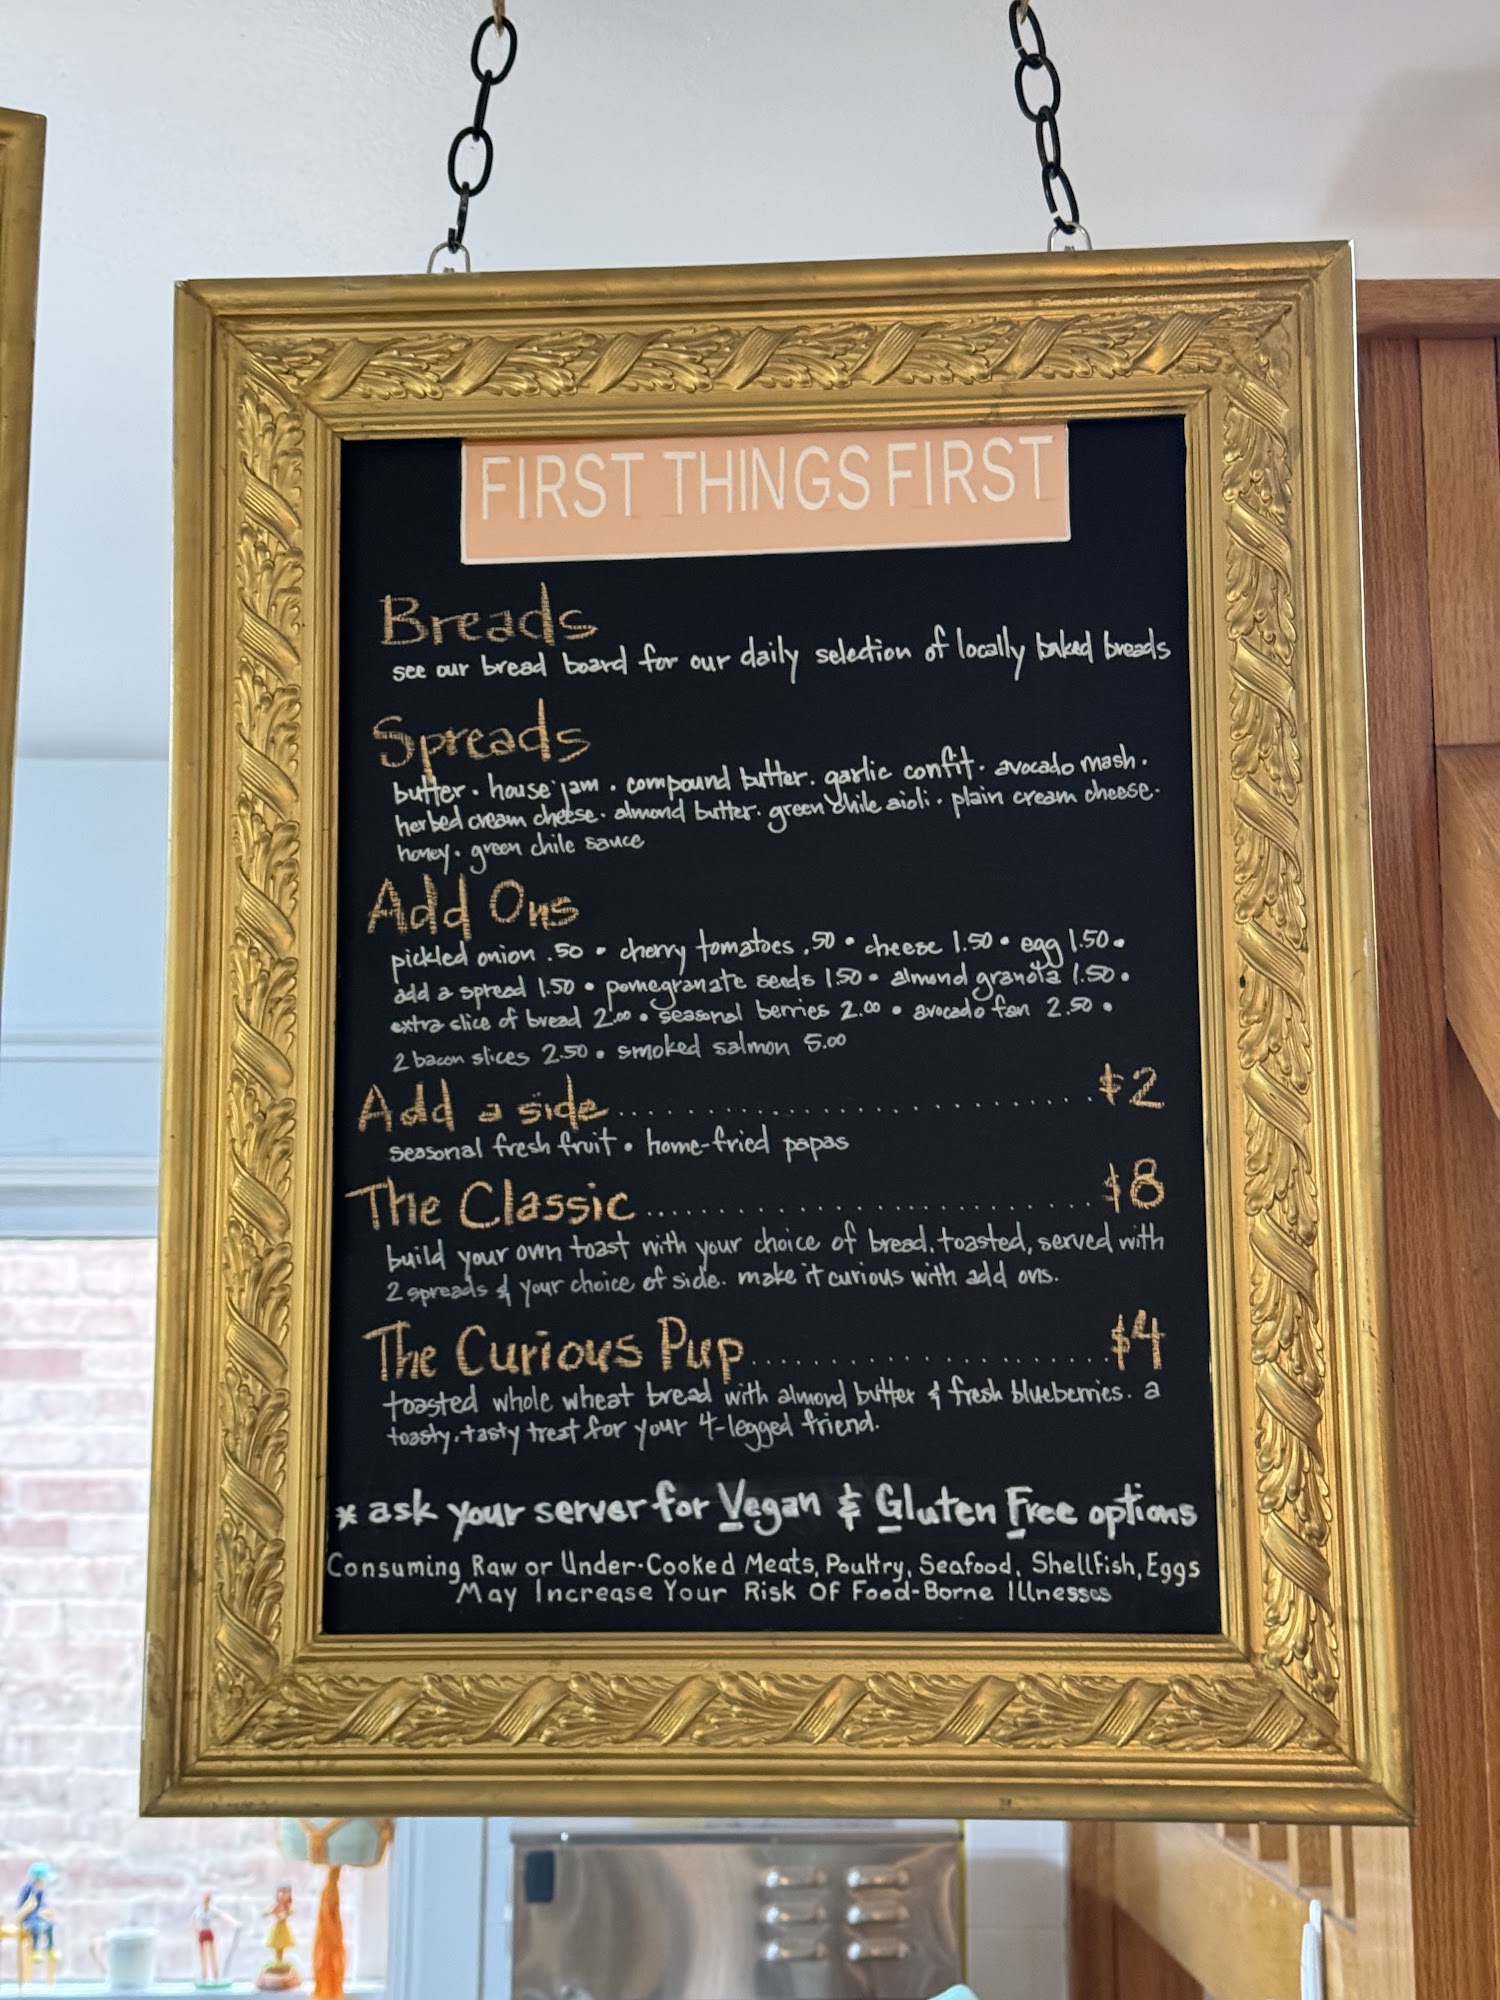 FIRST THINGS FIRST
Breads
see our bread board for our daily selection of locally baked breads
Spreads
butter · house jam · compound butter · garlic confit · avocado mash ·
herbed cream cheese · almond butter · green chile aioli · plain cream cheese ·
honey · green chile sauce
Add Ons
pickled onion .50 • cherry tomatoes .50 • cheese 1.50 • egg 1.50 •
add a spread 1.50 • pomegranate seeds 1.50 • almond granola 1.50 •
extra slice of bread 2.00 • seasonal berries 2.00 • avocado fan 2.50 •
2 bacon slices 2.50 • smoked salmon 5.00
Add a side .......................... $2
seasonal fresh fruit • home-fried papas
The Classic .......................... $8
build your own toast with your choice of bread, toasted, served with
2 spreads & your choice of side. make it curious with add ons.
The Curious Pup .................... $4
toasted whole wheat bread with almond butter & fresh blueberries. a
toasty, tasty treat for your 4-legged friend.
* ask your server for Vegan & Gluten Free options
Consuming Raw or Under-Cooked Meats, Poultry, Seafood, Shellfish, Eggs
May Increase Your Risk Of Food-Borne Illnesses